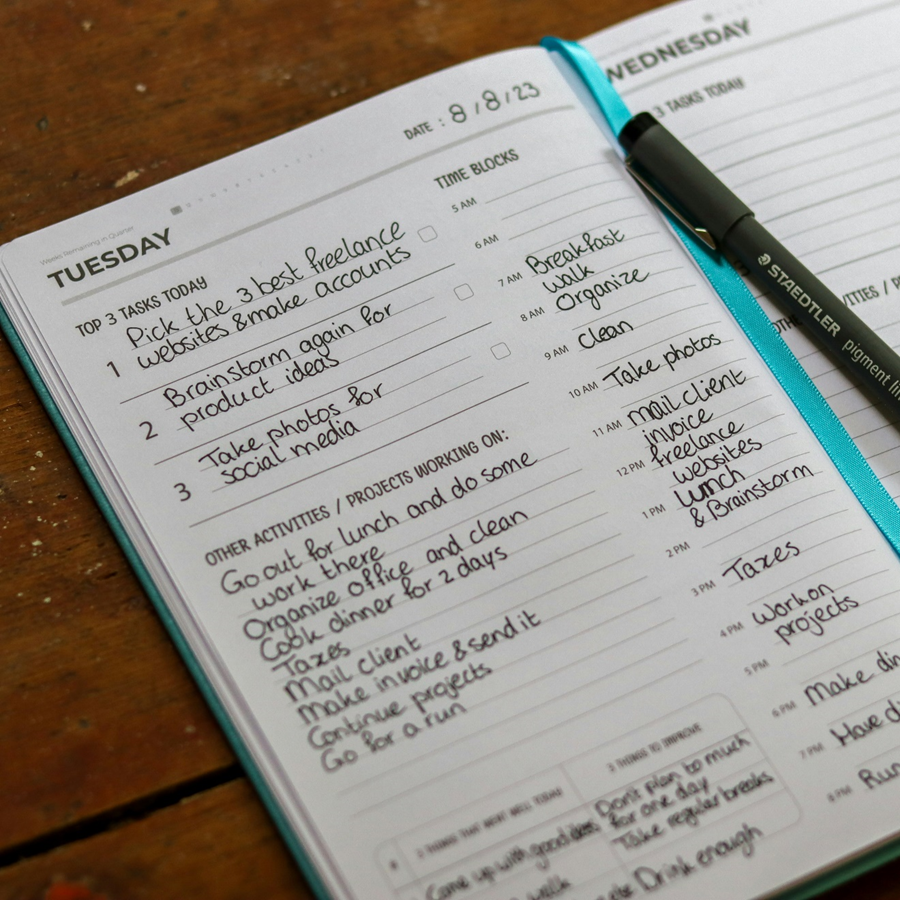 Weeks Remaining in Quarter
TUESDAY
DATE : 8/8/23
TOP 3 TASKS TODAY
1 Pick the 3 best freelance
websites & make accounts
2 Brainstorm again for
product ideas
3 Take photos for
social media
OTHER ACTIVITIES / PROJECTS WORKING ON:
Go out for lunch and do some
work there
Organize office and clean
Cook dinner for 2 days
Taxes
Mail client
Make invoice & send it
Continue projects
Go for a run
2 THINGS THAT WENT WELL TODAY
Came up with good
walk
2 THINGS TO IMPROVE
Don't plan to much
for one day
Take regular breaks
Drink enough
TIME BLOCKS
5 AM
6 AM
7 AM Breakfast
walk
8 AM Organize
9 AM Clean
10 AM Take photos
11 AM Mail client
invoice
12 PM freelance
websites
1 PM Lunch
& Brainstorm
2 PM
3 PM Taxes
4 PM Work on
projects
5 PM
6 PM Make din
7 PM Have di
8 PM Run
WEDNESDAY
3 TASKS TODAY
VITIES / P
STAEDTLER pigment lin